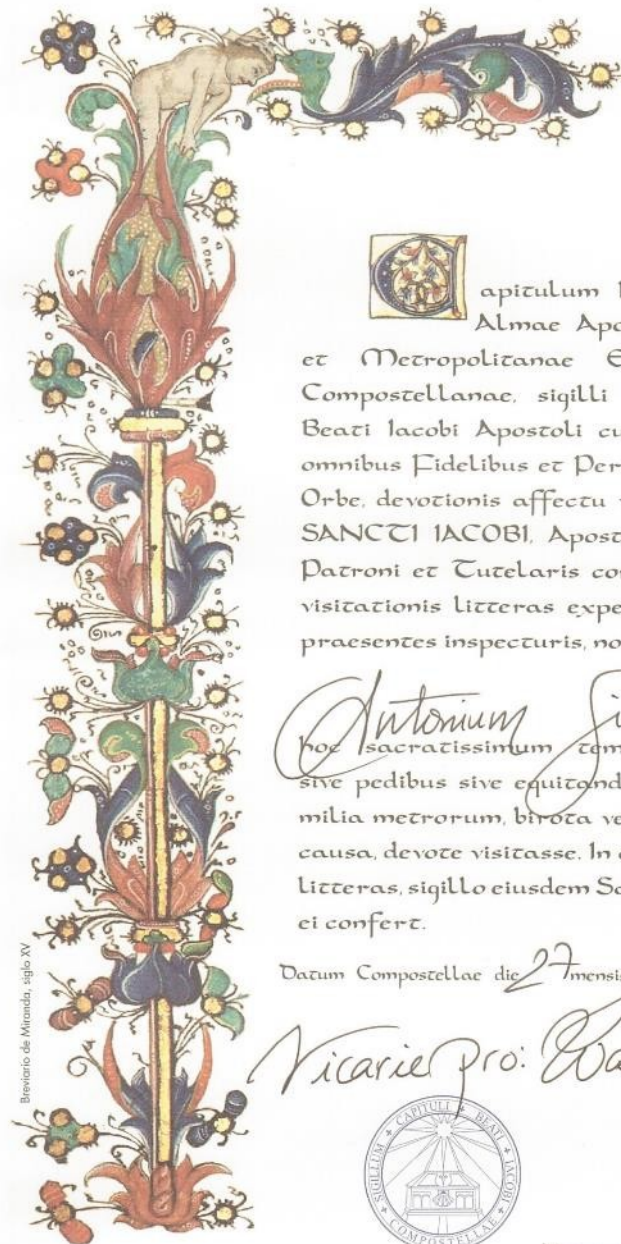 Capitulum
Almae Apo
et Metropolitanae E
Compostellanae, sigilli
Beati Iacobi Apostoli cu
omnibus Fidelibus et Per
Orbe, devotionis affectu
SANCTI IACOBI, Apost
Patroni et Tutelaris con
visitationis litteras expe
praesentes inspecturis, no
Antonium
hoc sacratissimum tem
sive pedibus sive equitand
milia metrorum, birota ve
causa, devote visitasse. In
litteras, sigillo eiusdem Sa
ei confert.
Datum Compostellae die 27 mensis
Vicarie Pro:
SIGILLUM CAPITULI BEATI IACOBI COMPOSTELLAE
Breviario de Miranda, siglo XV